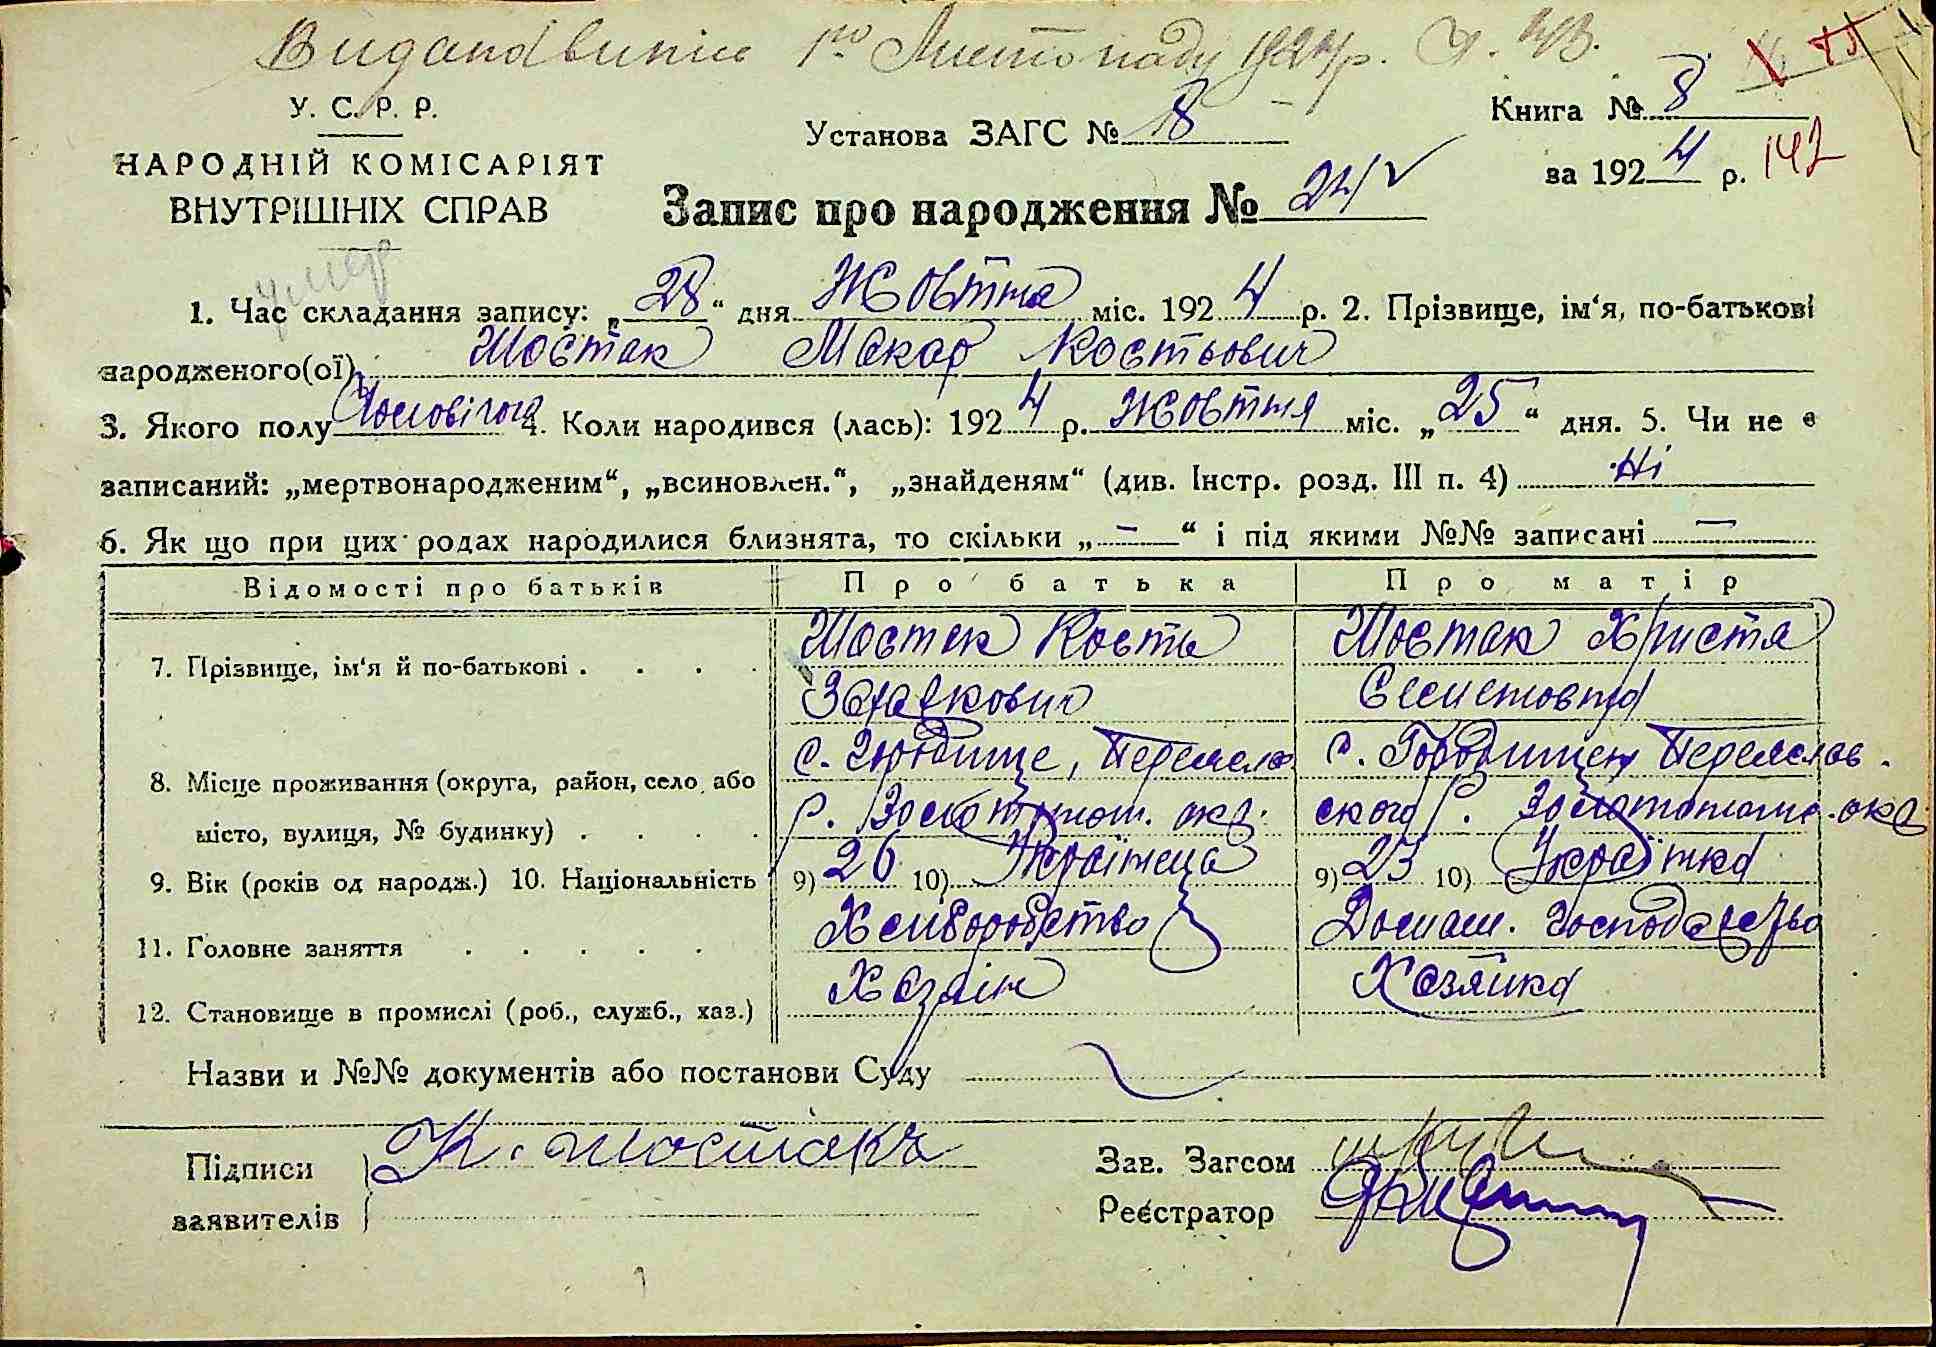 1го Листопаду 1924 р.
У. С. Р. Р.
НАРОДНІЙ КОМІСАРІЯТ
ВНУТРІШНІХ СПРАВ
Установа ЗАГС № 18
Книга № 8
за 1924 р. 142
Запис про народження № 24
умер
1. Час складання запису: „28“ дня Жовтня міс. 1924 р. 2. Прізвище, ім‘я, по-батькові
народженого(ої) Шостак Макар Костьович
3. Якого полу Чоловічого 4. Коли народився (лась): 1924 р. Жовтня міс. „25“ дня. 5. Чи не є
записаний: „мертвонародженим“, „всиновлен.“, „знайденям“ (див. Інстр. розд. III п. 4) Ні
6. Як що при цих родах народилися близнята, то скільки „ – “ і під якими №№ записані —
Відомості про батьків Про батька Про матір
7. Прізвище, ім‘я й по-батькові . . . . Шостак Кость Шостак Христя
8. Місце проживання (округа, район, село або с. Городище, Переясла с. Городищен Переяслав.
місто, вулиця, № будинку) . . . . Р. Золотонош. окр. ского Р. Золотонош. окр.
9. Вік (років од народж.) 10. Національність 9) 26 10) Українець 9) 23 10) Українка
11. Головне заняття . . . . . Хлиборобство Домаш. Господарство
12. Становище в промислі (роб., служб., хаз.) Хазяін Хазяйка
Назви и №№ документів або постанови Суду
Підписи К. Шостакъ Зав. Загсом
заявителів Реєстратор